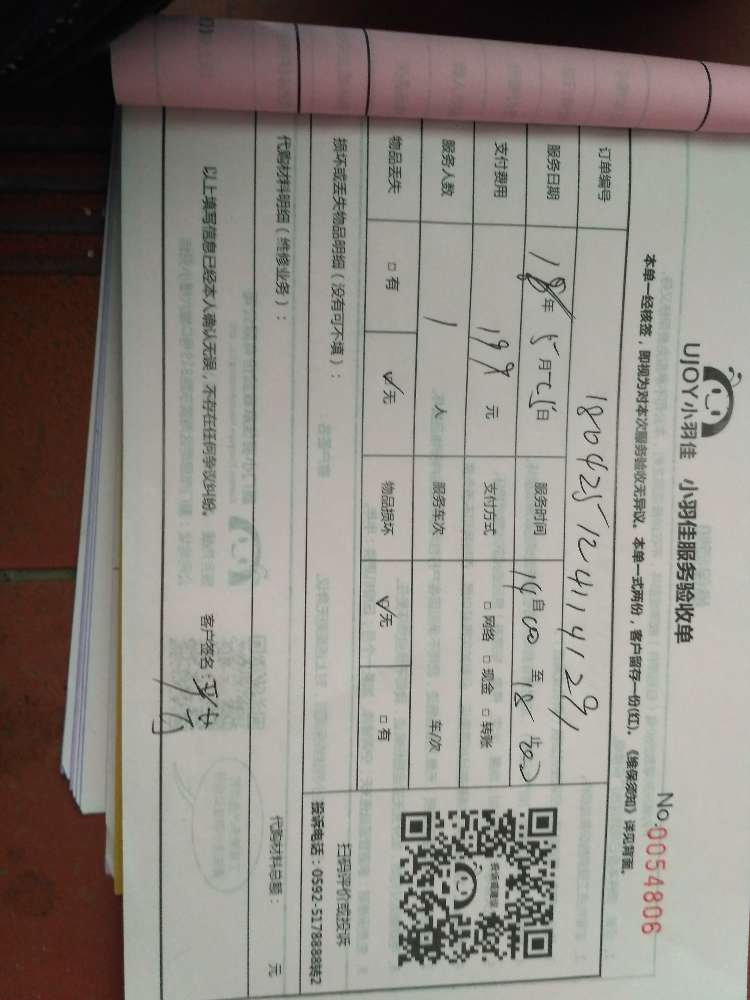 UJOY小羽佳 小羽佳服务验收单
No.0054806
本单一经核签，即视为对本次服务验收无异议。本单一式两份，客户留存一份(红)。《维保须知》详见背面。
订单编号
服务日期 18年5月25日 服务时间 自14:00至18
支付费用 199元 支付方式 □网络 □现金 □转账
服务人数 1人 服务车次 车/次
物品丢失 □有 ☑无 物品损坏 ☑无 □有
损坏或丢失物品明细（没有可不填）：
扫码评价或投诉
投诉电话：0592-5178888转2
代购材料明细（维修业务）：
代购材料总额： 元
以上填写信息已经本人确认无误，不存在任何争议纠纷。 客户签名：